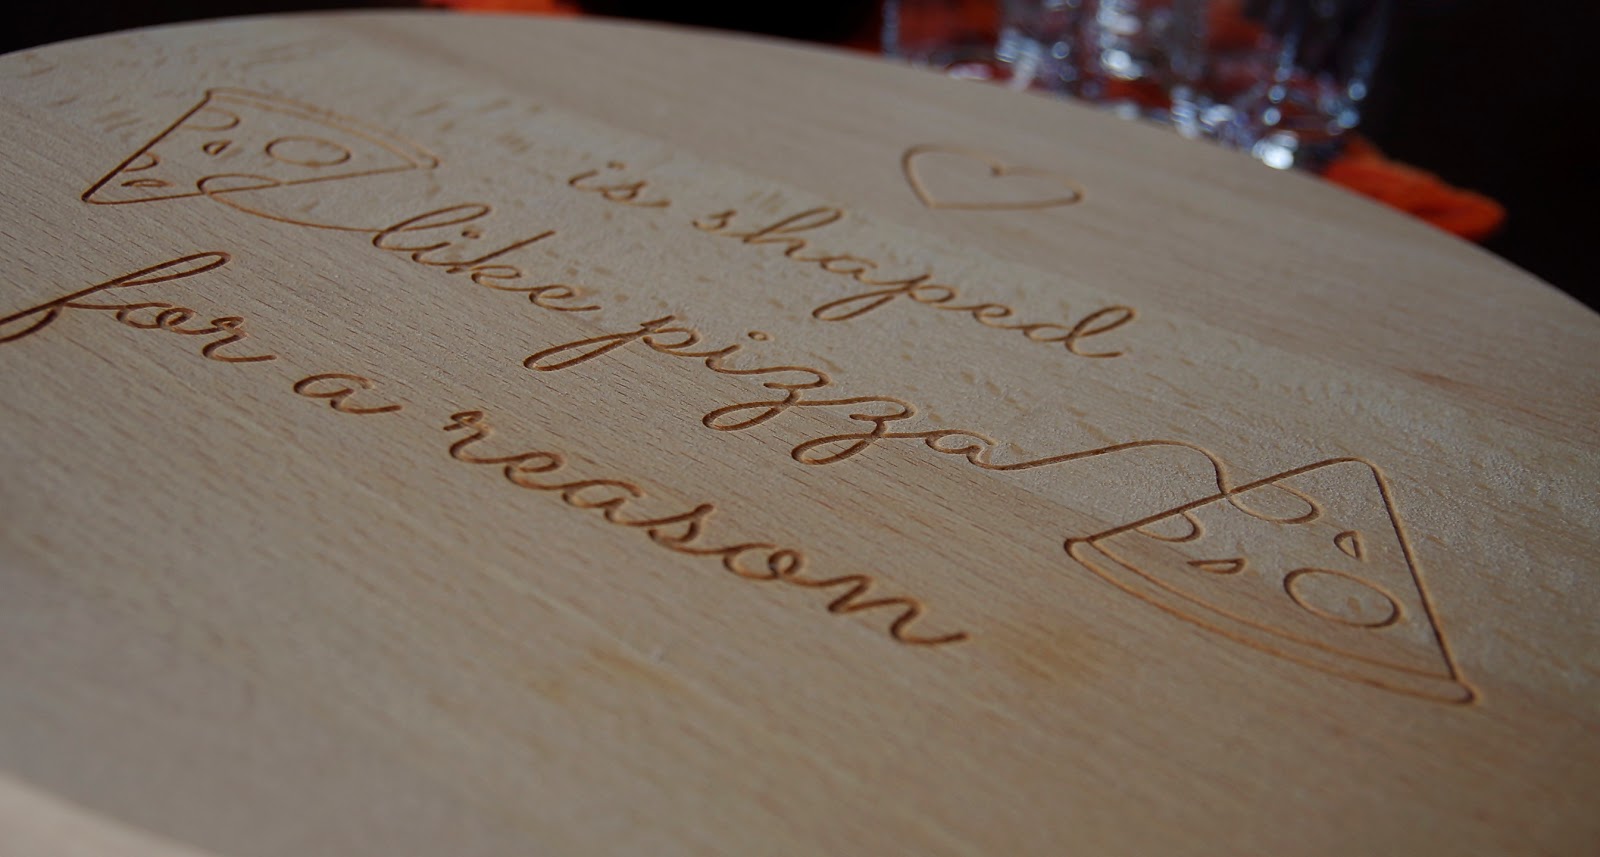 is shaped
like pizza
for a reason